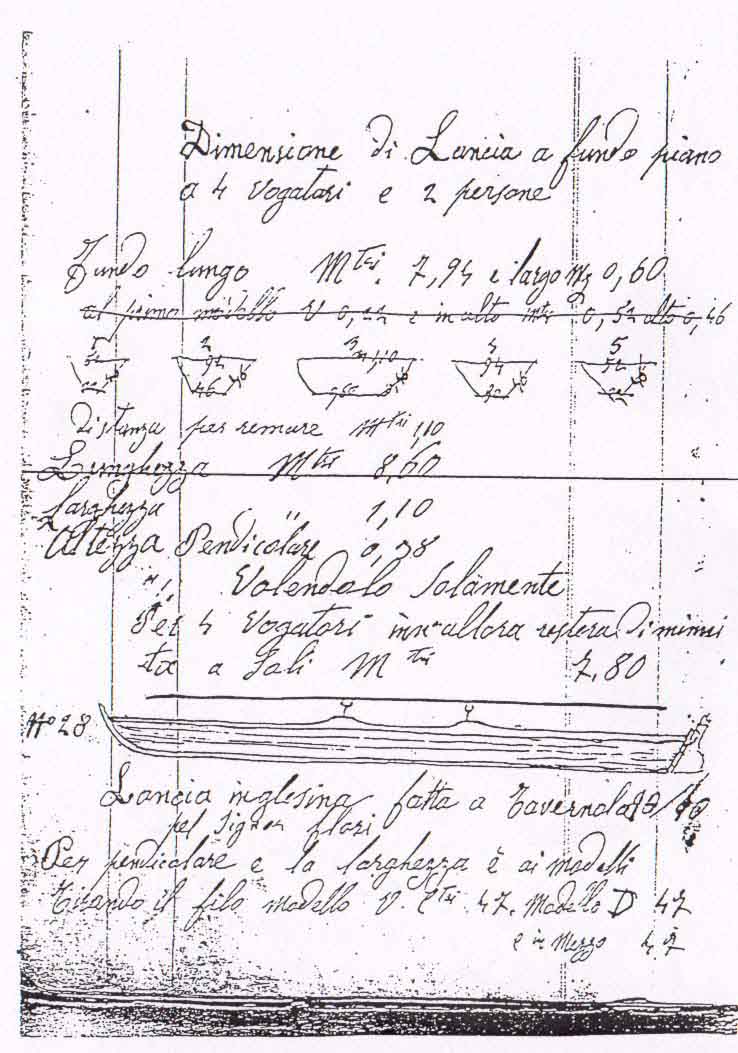 Dimensione di Lancia a fundo piano
a 4 Vogatari e 2 persone
Fundo lungo Mtri. 7,94 e largo 0,60
al primo modello V 0,22 e in alto mtri 0,52 alto 0,46
1 2 3 4 5
52 94 m 1,10 94 52
46
Distanza per remare Mtri 1,10
Lunghezza Mtri 8,60
Larghezza " 1,10
Altezza Pendicolare 0,38
" Volendolo Solamente
Per 4 Vogatori allora restera Diminui
ta a Soli Mtri 7,80
No 28
Lancia inglesina fatta a Tavernola
pel Signor Ilari
Per pendicolare e la larghezza è ai modelli
Tirando il filo modello V. Ctri 47. Modello D 47
e in Mezzo